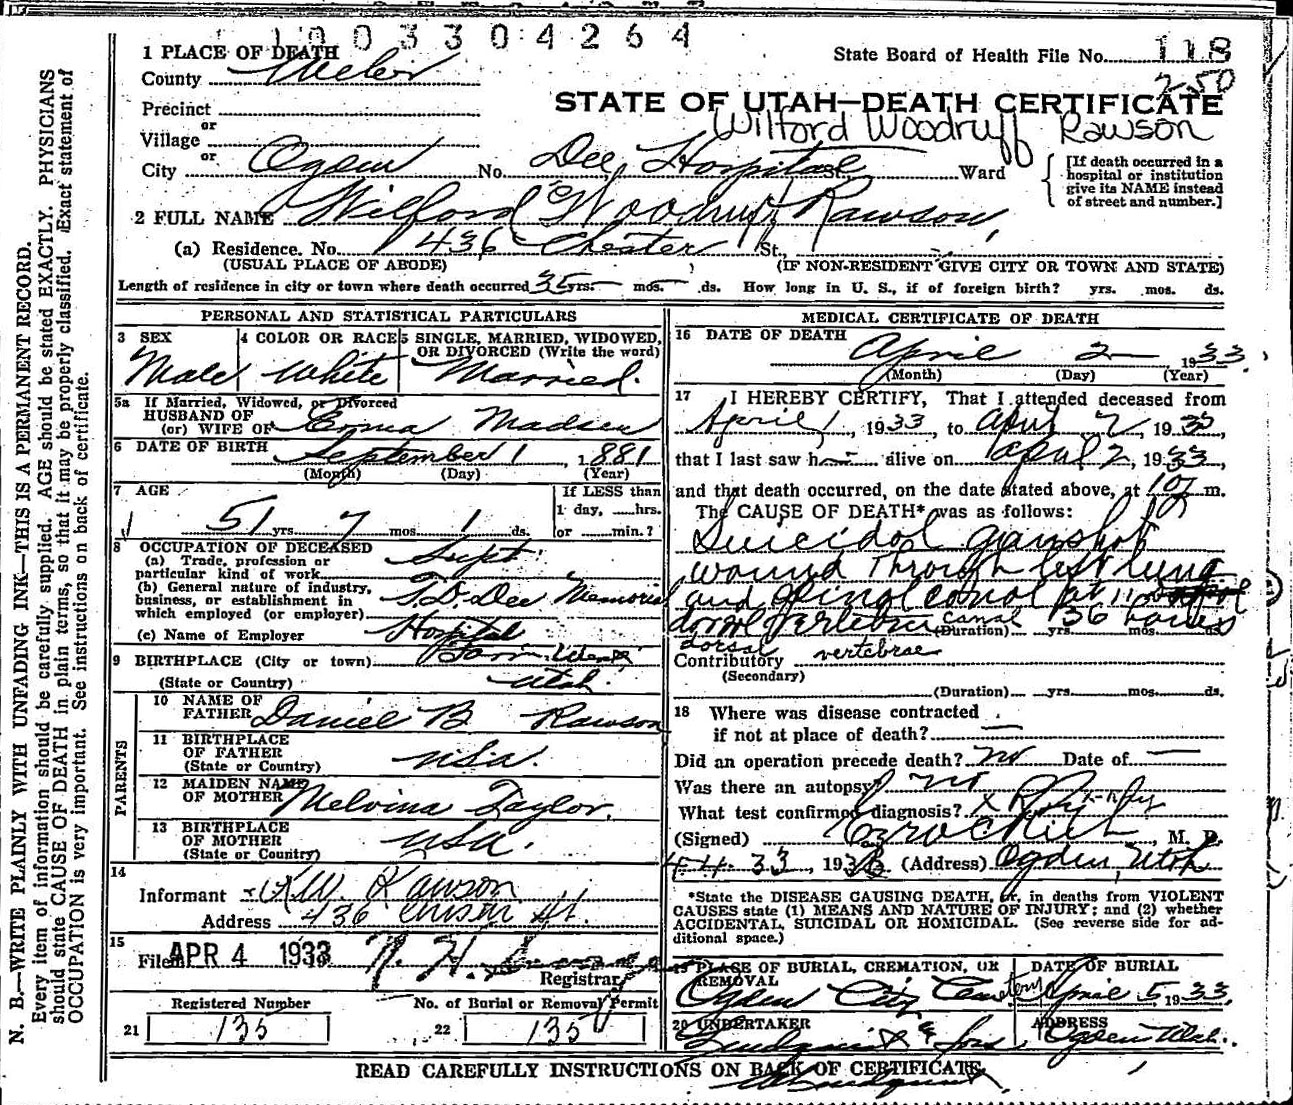 1003304264
1 PLACE OF DEATH
State Board of Health File No. 118
County Weber
250
Precinct
STATE OF UTAH—DEATH CERTIFICATE
or
Wilford Woodruff Rawson
Village
or
City Ogden No. Dee Hospital St. Ward
[If death occurred in a
hospital or institution
give its NAME instead
of street and number.]
2 FULL NAME Wilford Woodruff Rawson,
(a) Residence. No. 436 Chester St.,
(USUAL PLACE OF ABODE) (IF NON-RESIDENT GIVE CITY OR TOWN AND STATE)
Length of residence in city or town where death occurred 35 yrs. — mos. — ds. How long in U. S., if of foreign birth? yrs. mos. ds.
PERSONAL AND STATISTICAL PARTICULARS
3 SEX 4 COLOR OR RACE 5 SINGLE, MARRIED, WIDOWED,
OR DIVORCED (Write the word)
Male White Married.
5a If Married, Widowed, or Divorced
HUSBAND OF
(or) WIFE OF Emma Madsen
6 DATE OF BIRTH September 1, 1881
(Month) (Day) (Year)
7 AGE If LESS than
1 day, ___hrs.
51 yrs. 7 mos. 1 ds. or ___min.?
8 OCCUPATION OF DECEASED
(a) Trade, profession or
particular kind of work Supt.
(b) General nature of industry,
business, or establishment in
which employed (or employer) T. D. Dee Memorial
(c) Name of Employer Hospital
9 BIRTHPLACE (City or town)
(State or Country) Utah.
PARENTS
10 NAME OF
FATHER Daniel B Rawson
11 BIRTHPLACE
OF FATHER
(State or Country) USA.
12 MAIDEN NAME
OF MOTHER Melvina Taylor.
13 BIRTHPLACE
OF MOTHER
(State or Country) USA.
14
Informant W Rawson
Address 436 St.
15
Filed APR 4 1933
Registrar
Registered Number No. of Burial or Removal Permit
21 135 22 135
MEDICAL CERTIFICATE OF DEATH
16 DATE OF DEATH
April 2 1933
(Month) (Day) (Year)
17 I HEREBY CERTIFY, That I attended deceased from
April 1, 1933, to April 2, 1933,
that I last saw h alive on April 2, 1933,
and that death occurred, on the date stated above, at 10 m.
The CAUSE OF DEATH* was as follows:
Suicidal gunshot
wound through left lung
and spinal canal at 11
dorsal vertebrae canal 36 hours
(Duration) yrs. mos. ds.
dorsal vertebrae
Contributory
(Secondary)
(Duration) yrs. mos. ds.
18 Where was disease contracted
if not at place of death? —
Did an operation precede death? no Date of —
Was there an autopsy? no
What test confirmed diagnosis? X Ray X-ray
(Signed) M. D.
4-4-33, 1933 (Address) Ogden, Utah
*State the DISEASE CAUSING DEATH, or, in deaths from VIOLENT
CAUSES state (1) MEANS AND NATURE OF INJURY; and (2) whether
ACCIDENTAL, SUICIDAL OR HOMICIDAL. (See reverse side for ad-
ditional space.)
19 PLACE OF BURIAL, CREMATION, OR
REMOVAL
Ogden City Cemetery
DATE OF BURIAL
April 5 1933.
20 UNDERTAKER ADDRESS
Lindquist & Sons, Ogden Utah.
READ CAREFULLY INSTRUCTIONS ON BACK OF CERTIFICATE
N. B.—WRITE PLAINLY WITH UNFADING INK—THIS IS A PERMANENT RECORD.
Every item of information should be carefully supplied. AGE should be stated EXACTLY. PHYSICIANS
should state CAUSE OF DEATH in plain terms, so that it may be properly classified. Exact statement of
OCCUPATION is very important. See instructions on back of certificate.